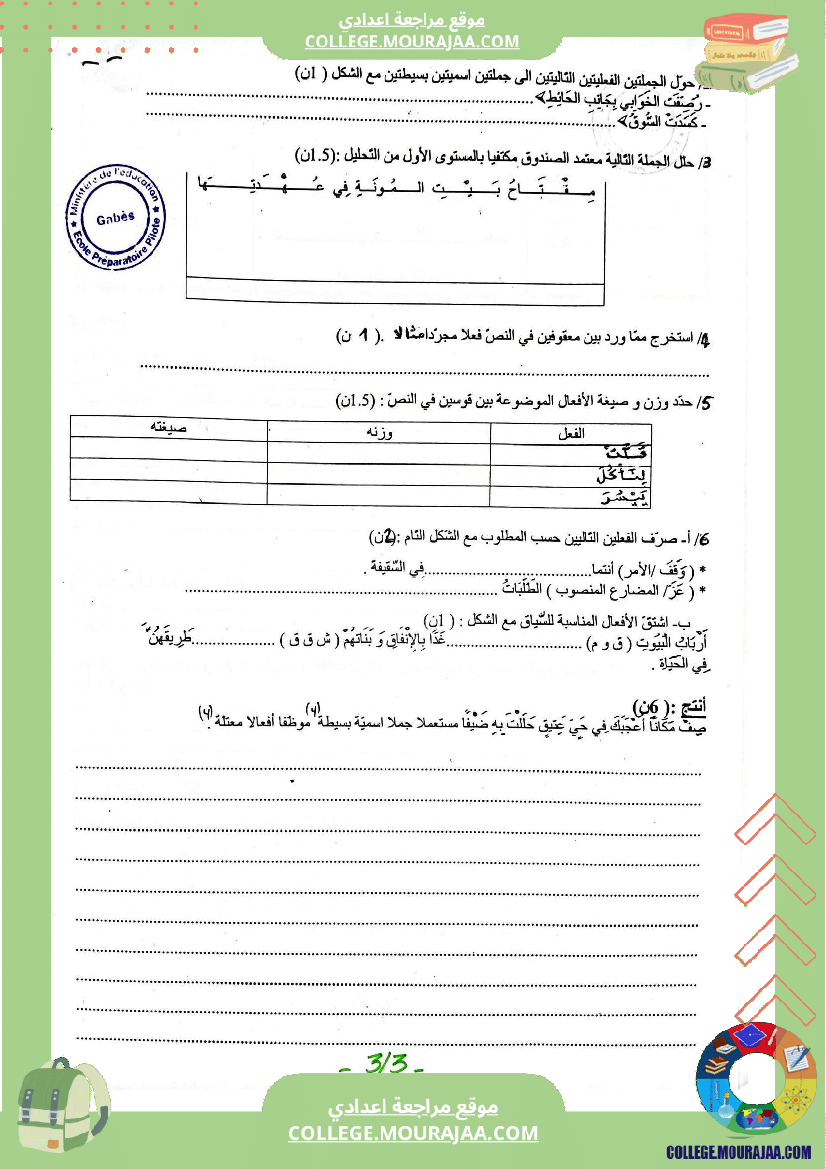 موقع مراجعة اعدادي
COLLEGE.MOURAJAA.COM
/ حوّل الجملتين الفعليتين التاليتين الى جملتين اسميتين بسيطتين مع الشكل ( 1ن)
- رُصِفَت الخَوَابي بِجَانِبِ الحَائِطِ>......................
- كَسَدَتْ السُّوقُ>......................
3/ حلل الجملة التالية معتمد الصندوق مكتفيا بالمستوى الأول من التحليل :(1.5ن)
مِـــفْـــتَـــاحُ بَـــيْـــتِ الـــمُـــونَـــةِ فِي عُـــهْـــدَتِـــهَا
Ministère de l'éducation
Gabès
Ecole Préparatoire Pilote
4/ استخرج ممّا ورد بين معقوفين في النصّ فعلا مجرّدا مثالا .( 1 ن)
......................
5/ حدّد وزن و صيغة الأفعال الموضوعة بين قوسين في النصّ : (1.5ن)
الفعل وزنه صيغته
قَلَّتْ
لِتَأْكُلَ
يَيْسُرَ
6/ أ- صرّف الفعلين التاليين حسب المطلوب مع الشكل التام :(2ن)
* ( وَقَفَ /الأمر) أنتما......................في السَّقِيفَة .
* ( عَزَّ/ المضارع المنصوب ) الطَّالِبَاتُ ......................
ب- اشتقّ الأفعال المناسبة للسّياق مع الشكل : ( 1ن)
أَرْبَابُ الْبُيُوتِ ( ق و م) ......................غَدًا بِالإِنْفَاقِ وَ بَنَاتُهُمْ ( ش ق ق ) ......................طَرِيقَهُنَّ
فِي الحَيَاةِ .
أنتج :( 6ن)
صِفْ مَكَانًا أَعْجَبَكَ فِي حَيٍّ عَتِيقٍ حَلَلْتَ بِهِ ضَيْفًا مستعملا جملا اسميّة بسيطة (4) موظفا أفعالا معتلّة .(4)
- 3/3 -
موقع مراجعة اعدادي
COLLEGE.MOURAJAA.COM
COLLEGE.MOURAJAA.COM